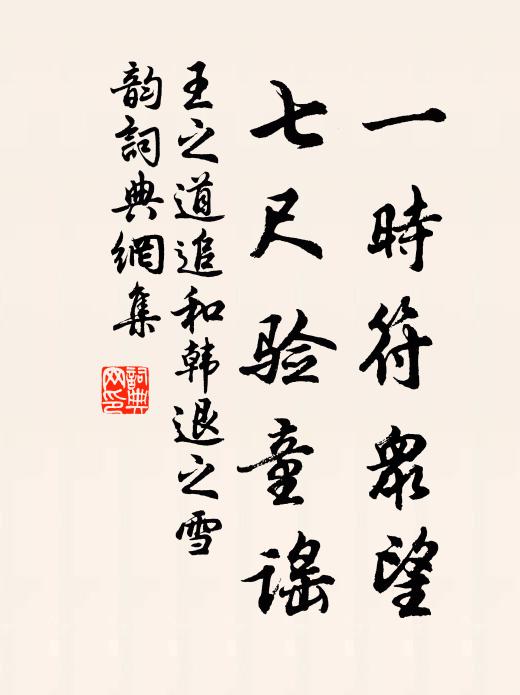 一時符衆望
七尺验童谣
王之道追和韩退之雪
韵詞典網集
詞典網印